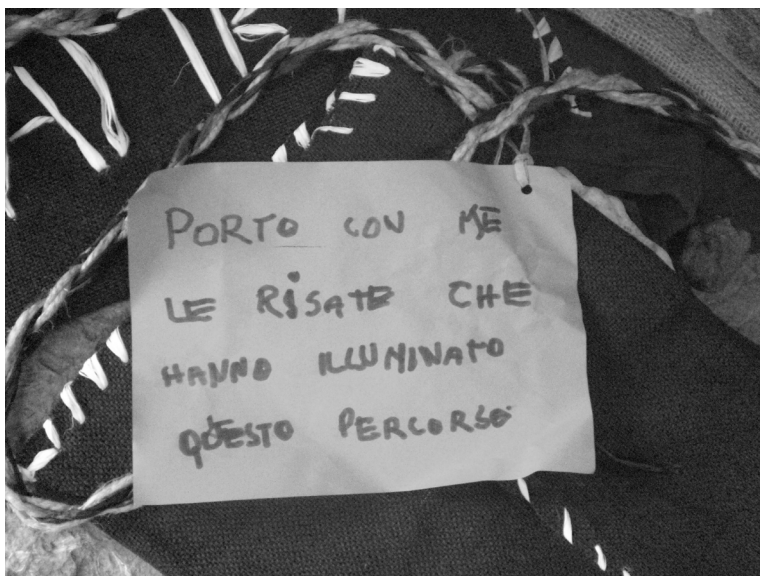 PORTO CON ME
LE RISATE CHE
HANNO ILLUMINATO
QUESTO PERCORSO